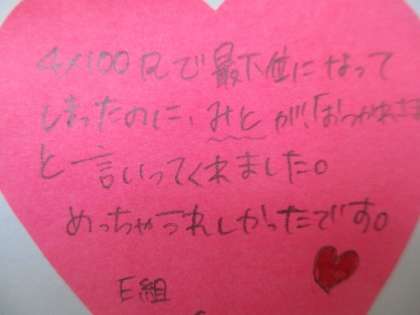 4×100Rで最下位になって
しまったのに、みとが、「おつかれさま
と言いってくれました。
めっちゃうれしかったです。
E組